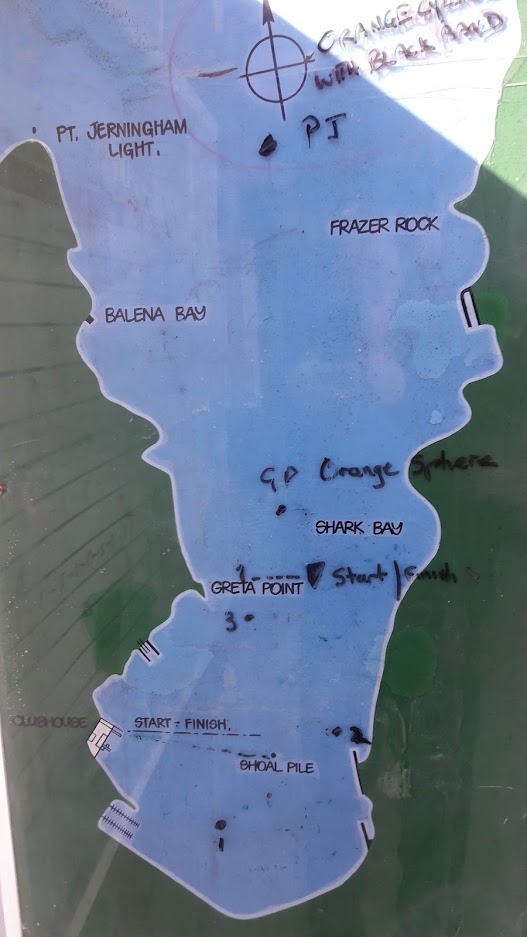 ORANGE
WITH BLACK BAND
PJ
PT. JERNINGHAM
LIGHT.
FRAZER ROCK
BALENA BAY
GP Orange Sphere
SHARK BAY
1
Start / Finish
GRETA POINT
3
CLUBHOUSE
START - FINISH.
2
SHOAL PILE
1